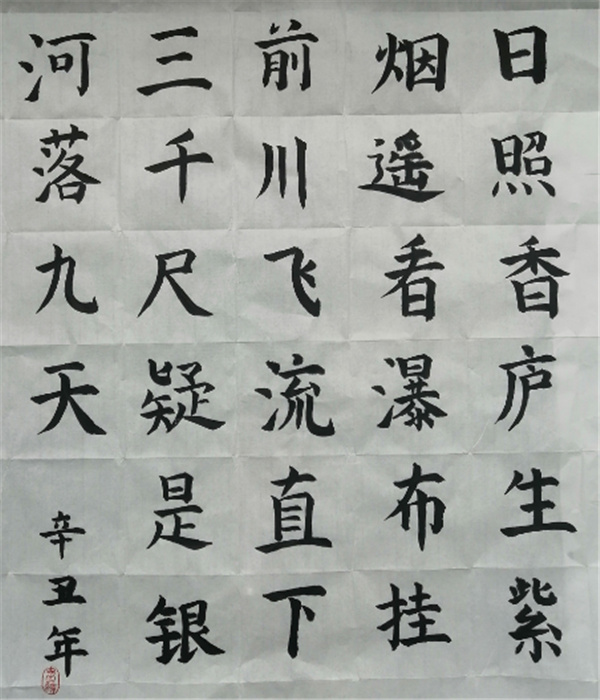 日照香庐生紫
烟遥看瀑布挂
前川飞流直下
三千尺疑是银
河落九天
辛丑年